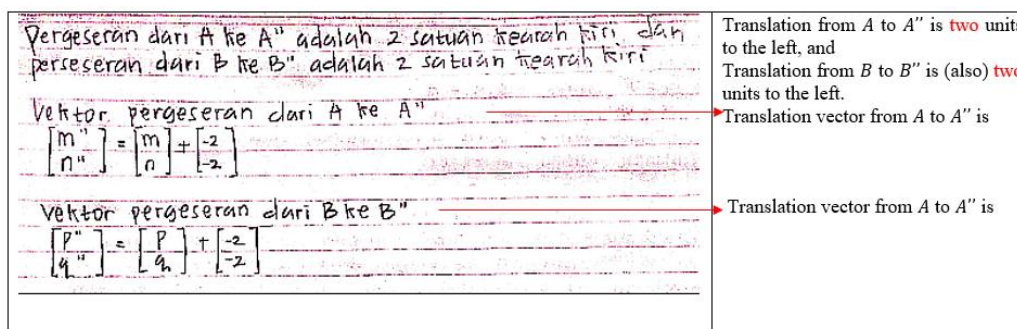 Pergeseran dari A ke A" adalah 2 satuan kearah kiri, dan
perseseran dari B ke B" adalah 2 satuan kearah kiri
Vektor pergeseran dari A ke A"
[m" n"] = [m n] + [-2 -2]
Vektor pergeseran dari B ke B"
[P" q"] = [P q] + [-2 -2]
Translation from A to A″ is two units
to the left, and
Translation from B to B″ is (also) two
units to the left.
Translation vector from A to A″ is
Translation vector from A to A″ is